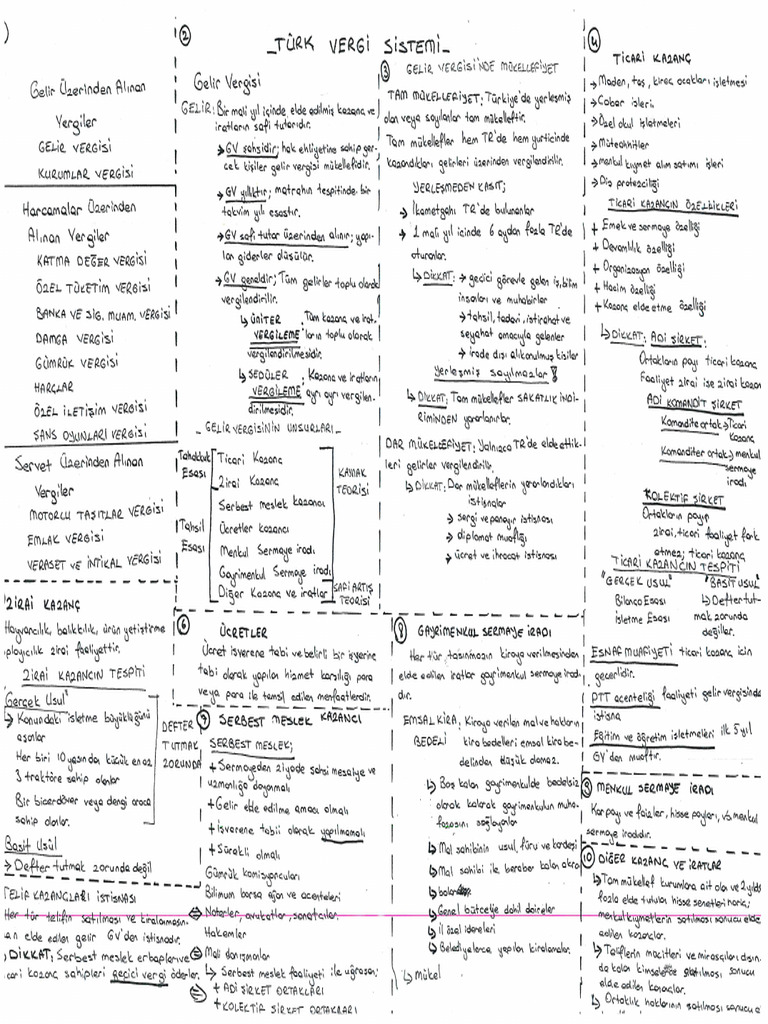 )
Gelir Üzerinden Alınan
Vergiler
GELİR VERGİSİ
KURUMLAR VERGİSİ
Harcamalar Üzerinden
Alınan Vergiler
KATMA DEĞER VERGİSİ
ÖZEL TÜKETİM VERGİSİ
BANKA VE SİG. MUAM. VERGİSİ
DAMGA VERGİSİ
GÜMRÜK VERGİSİ
HARÇLAR
ÖZEL İLETİŞİM VERGİSİ
ŞANS OYUNLARI VERGİSİ
Servet Üzerinden Alınan
Vergiler
MOTORLU TAŞITLAR VERGİSİ
EMLAK VERGİSİ
VERASET VE İNTİKAL VERGİSİ
②
_TÜRK VERGİ SİSTEMİ_
Gelir Vergisi
GELİR: Bir mali yıl içinde elde edilmiş kazanç ve
iratların safi tutarıdır.
→ GV şahsidir; hak ehliyetine sahip ger-
çek kişiler gelir vergisi mükellefidir.
→ GV yıllıktır; matrahın tespitinde bir
takvim yılı esastır.
→ GV safi tutar üzerinden alınır; yapı-
lan giderler düşülür.
→ GV geneldir; Tüm gelirler toplu olarak
vergilendirilir.
↳ ÜNİTER VERGİLEME: Tüm kazanç ve irat-
ların toplu olarak
vergilendirilmesidir.
↳ SEDÜLER VERGİLEME: Kazanç ve iratların
ayrı ayrı vergilen-
dirilmesidir.
_GELİR VERGİSİNİN UNSURLARI_
Tahakkuk Esası
Ticari Kazanç
Zirai Kazanç
Serbest meslek kazancı
Tahsil Esası
Ücretler kazancı
Menkul Sermaye iradı
Gayrimenkul Sermaye iradı
KAYNAK TEORİSİ
Diğer Kazanç ve iratlar
SAFİ ARTIŞ TEORİSİ
③ GELİR VERGİSİ'NDE MÜKELLEFİYET
TAM MÜKELLEFİYET: Türkiye'de yerleşmiş
olan veya sayılanlar tam mükelleftir.
Tam mükellefler hem TR'de hem yurtiçinde
kazandıkları gelirleri üzerinden vergilendirilir.
YERLEŞMEDEN KASIT;
→ İkametgahı TR'de bulunanlar
→ 1 mali yıl içinde 6 aydan fazla TR'de
oturanlar.
↳ DİKKAT: → geçici görevle gelen iş, bilim
insanları ve muhabirler
→ tahsil, tedavi, istirahat ve
seyahat amacıyla gelenler
→ irade dışı alıkonulmuş kişiler
Yerleşmiş sayılmazlar!
↳ DİKKAT: Tam mükellefler SAKATLIK İNDİ-
RİMİNDEN yararlanırlar.
DAR MÜKELLEFİYET: Yalnızca TR'de elde ettik-
leri gelirler vergilendirilir.
↳ DİKKAT: Dar mükelleflerin yararlandıkları
istisnalar
→ sergi ve panayır istisnası
→ diplomat muaflığı
→ ücret ve ihracat istisnası
④
TİCARİ KAZANÇ
→ Maden, taş, kireç ocakları işletmesi
→ Cober işleri
→ Özel okul işletmeleri
→ Müteahhitler
→ menkul kıymet alım satımı işleri
→ Diş protezciliği
TİCARİ KAZANCIN ÖZELLİKLERİ
+ Emek ve sermaye özelliği
+ Devamlılık özelliği
+ Organizasyon özelliği
+ Hacim özelliği
+ Kazanç elde etme özelliği
↳ DİKKAT: ADİ ŞİRKET:
Ortakların payı ticari kazanç
Faaliyet zirai ise zirai kazanç
ADİ KOMANDİT ŞİRKET
Komandite ortak → Ticari
kazanç
Komanditer ortak → menkul
sermaye
iradı
KOLEKTİF ŞİRKET
Ortakların payı
zirai, ticari faaliyet fark
etmez; ticari kazanç
TİCARİ KAZANCIN TESPİTİ
"GERÇEK USUL"
Bilanço Esası
işletme Esası
"BASİT USUL"
↳ Defter tut-
mak zorunda
değiller.
ESNAF MUAFİYETİ ticari kazanç için
geçerlidir.
PTT acenteliği faaliyeti gelir vergisinde
istisna
Eğitim ve öğretim işletmeleri ilk 5 yıl
GV'den muaftır.
ZİRAİ KAZANÇ
Hayvancılık, balıkçılık, ürün yetiştirme
zirai faaliyettir.
ZİRAİ KAZANCIN TESPİTİ
Gerçek Usul
↳ Kanundaki işletme büyüklüğünü
aşanlar
Her biri 10 yaşından küçük en az
3 traktöre sahip olanlar
Bir biçerdöver veya dengi araca
sahip olanlar.
DEFTER TUTMAK ZORUNDA
Basit Usul
→ Defter tutmak zorunda değil
TELİF KAZANÇLARI İSTİSNASI
Her tür telifin satılması ve kiralanmasın-
an elde edilen gelir GV'den istisnadır.
DİKKAT; Serbest meslek erbapları ve
cari kazanç sahipleri geçici vergi öderler.
⑥ ÜCRETLER
Ücret işverene tabi ve belirli bir işyerine
tabi olarak yapılan hizmet karşılığı para
veya para ile temsil edilen menfaatlerdir.
⑦ SERBEST MESLEK KAZANCI
SERBEST MESLEK;
+ Sermayeden ziyade şahsi mesaiye ve
uzmanlığa dayanmalı
+ Gelir elde edilme amacı olmalı
+ işverene tabii olarak yapılmamalı
+ Sürekli olmalı
Gümrük komisyoncuları
Bilimum borsa ajan ve acenteleri
Noterler, avukatlar, sanatçılar.
Hakemler
Mali danışmanlar
↳ Serbest meslek faaliyeti ile uğraşan;
+ ADİ ŞİRKET ORTAKLARI
+ KOLEKTİF ŞİRKET ORTAKLARI
⑧ GAYRİMENKUL SERMAYE İRADI
Her tür taşınmazın kiraya verilmesinden
elde edilen iratlar gayrimenkul sermaye iradı-
dır.
EMSAL KİRA BEDELİ: Kiraya verilen mal ve hakların
kira bedelleri emsal kira be-
delinden düşük olamaz.
↳ Boş kalan gayrimenkulde bedelsiz
olarak kalarak gayrimenkulun muha-
fazasını sağlayanlar
↳ Mal sahibinin usul, füru ve kardeşi
↳ Mal sahibi ile beraber kalan akra-
balar
↳ Genel bütçeye dahil daireler
↳ İl özel idareleri
↳ Belediyelerce yapılan kiralamalar.
↳ Mükel
⑨ MENKUL SERMAYE İRADI
Kar payı ve faizler, hisse payları, vs menkul
sermaye iradıdır.
⑩ DİĞER KAZANÇ VE İRATLAR
↳ Tam mükellef kurumlara ait olan ve 2 yıldan
fazla elde tutulan hisse senetleri hariç;
menkul kıymetlerin satılması sonucu elde
edilen kazançlar.
↳ Teliflerin mucitleri ve mirasçıları dışın-
da kalan kimselerce satılması sonucu
elde edilen kazançlar.
↳ Ortaklık haklarının satılması sonucu e